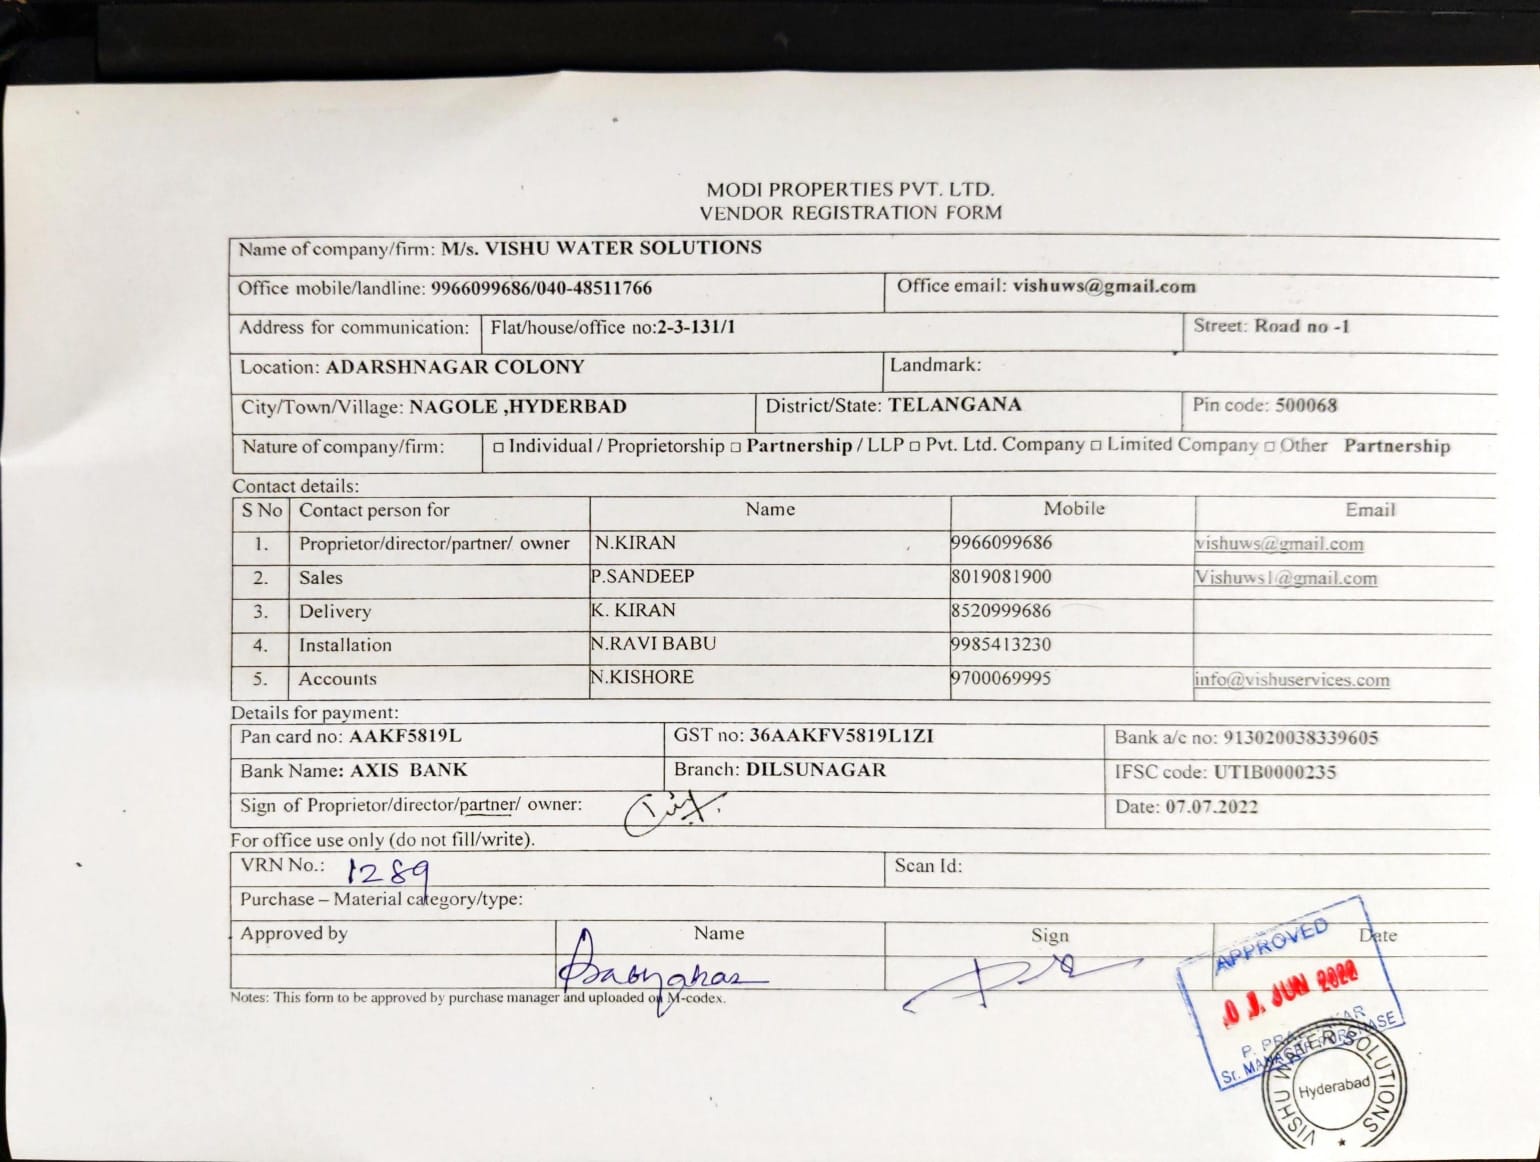 MODI PROPERTIES PVT. LTD.
VENDOR REGISTRATION FORM
Name of company/firm: M/s. VISHU WATER SOLUTIONS
Office mobile/landline: 9966099686/040-48511766 Office email: vishuws@gmail.com
Address for communication: Flat/house/office no:2-3-131/1 Street: Road no -1
Location: ADARSHNAGAR COLONY Landmark:
City/Town/Village: NAGOLE ,HYDERBAD District/State: TELANGANA Pin code: 500068
Nature of company/firm: □ Individual / Proprietorship □ Partnership / LLP □ Pvt. Ltd. Company □ Limited Company □ Other Partnership
Contact details:
S No Contact person for Name Mobile Email
1. Proprietor/director/partner/ owner N.KIRAN 9966099686 vishuws@gmail.com
2. Sales P.SANDEEP 8019081900 Vishuws1@gmail.com
3. Delivery K. KIRAN 8520999686
4. Installation N.RAVI BABU 9985413230
5. Accounts N.KISHORE 9700069995 info@vishuservices.com
Details for payment:
Pan card no: AAKF5819L GST no: 36AAKFV5819L1ZI Bank a/c no: 913020038339605
Bank Name: AXIS BANK Branch: DILSUNAGAR IFSC code: UTIB0000235
Sign of Proprietor/director/partner/ owner: Date: 07.07.2022
For office use only (do not fill/write).
VRN No.: 1289 Scan Id:
Purchase – Material category/type:
Approved by Name Sign Date
Notes: This form to be approved by purchase manager and uploaded on M-codex.
APPROVED
JUN 2022
Sr. MANAGER PURCHASE
VISHU WATER SOLUTIONS
Hyderabad